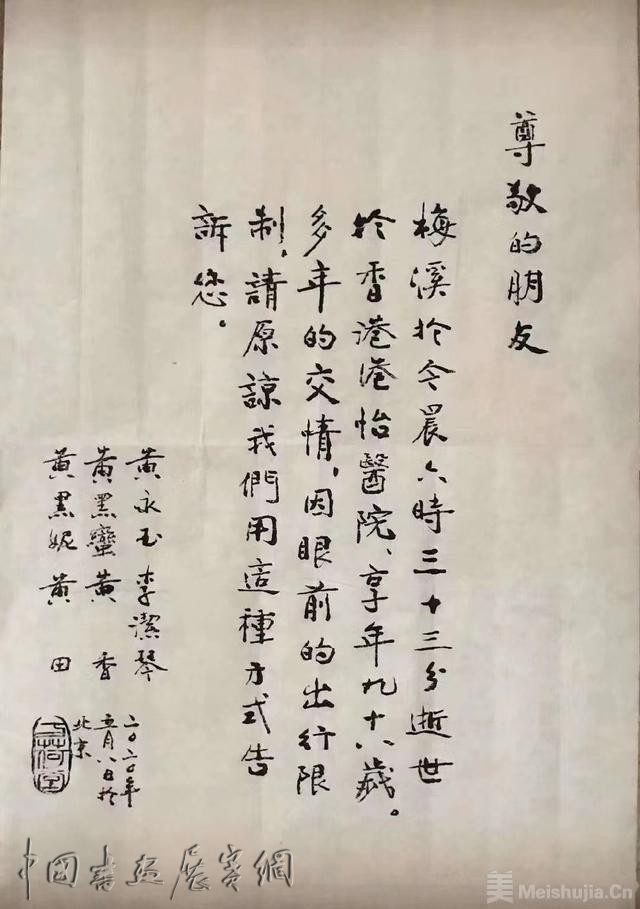 尊敬的朋友
梅溪於今晨六時三十三分逝世
於香港港怡醫院、享年九十八歲。
多年的交情，因眼前的出行限
制，請原諒我們用這種方式告
訴您。
黃永玉 李潔琴
黃黑蠻 黃香
黃黑妮 黃田
二〇二〇年
五月八日於
北京
中国書画展賽網
美 Meishujia.Cn